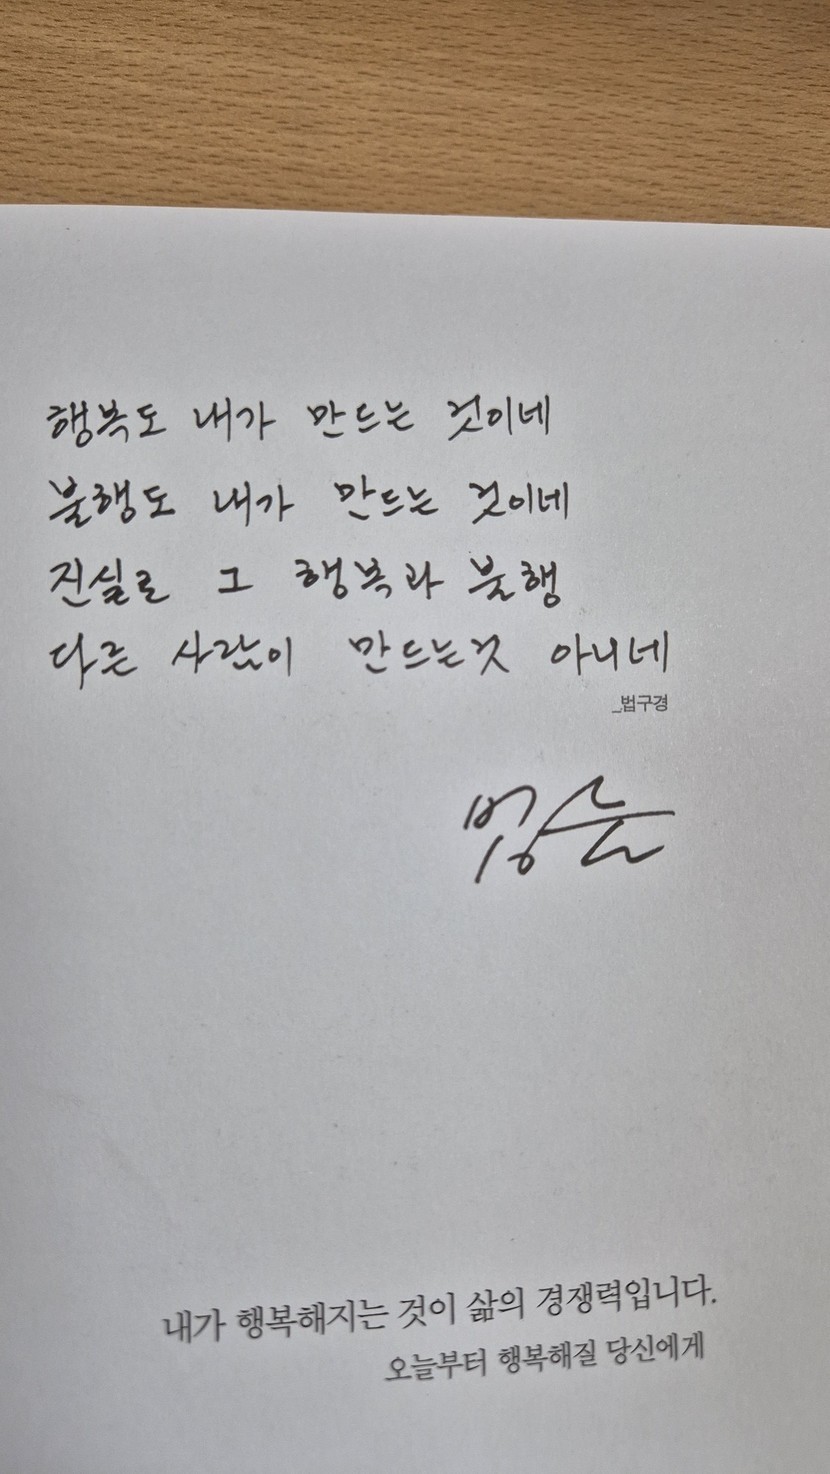 행복도 내가 만드는 것이네
불행도 내가 만드는 것이네
진실로 그 행복과 불행
다른 사람이 만드는것 아니네
_법구경
법륜
내가 행복해지는 것이 삶의 경쟁력입니다.
오늘부터 행복해질 당신에게